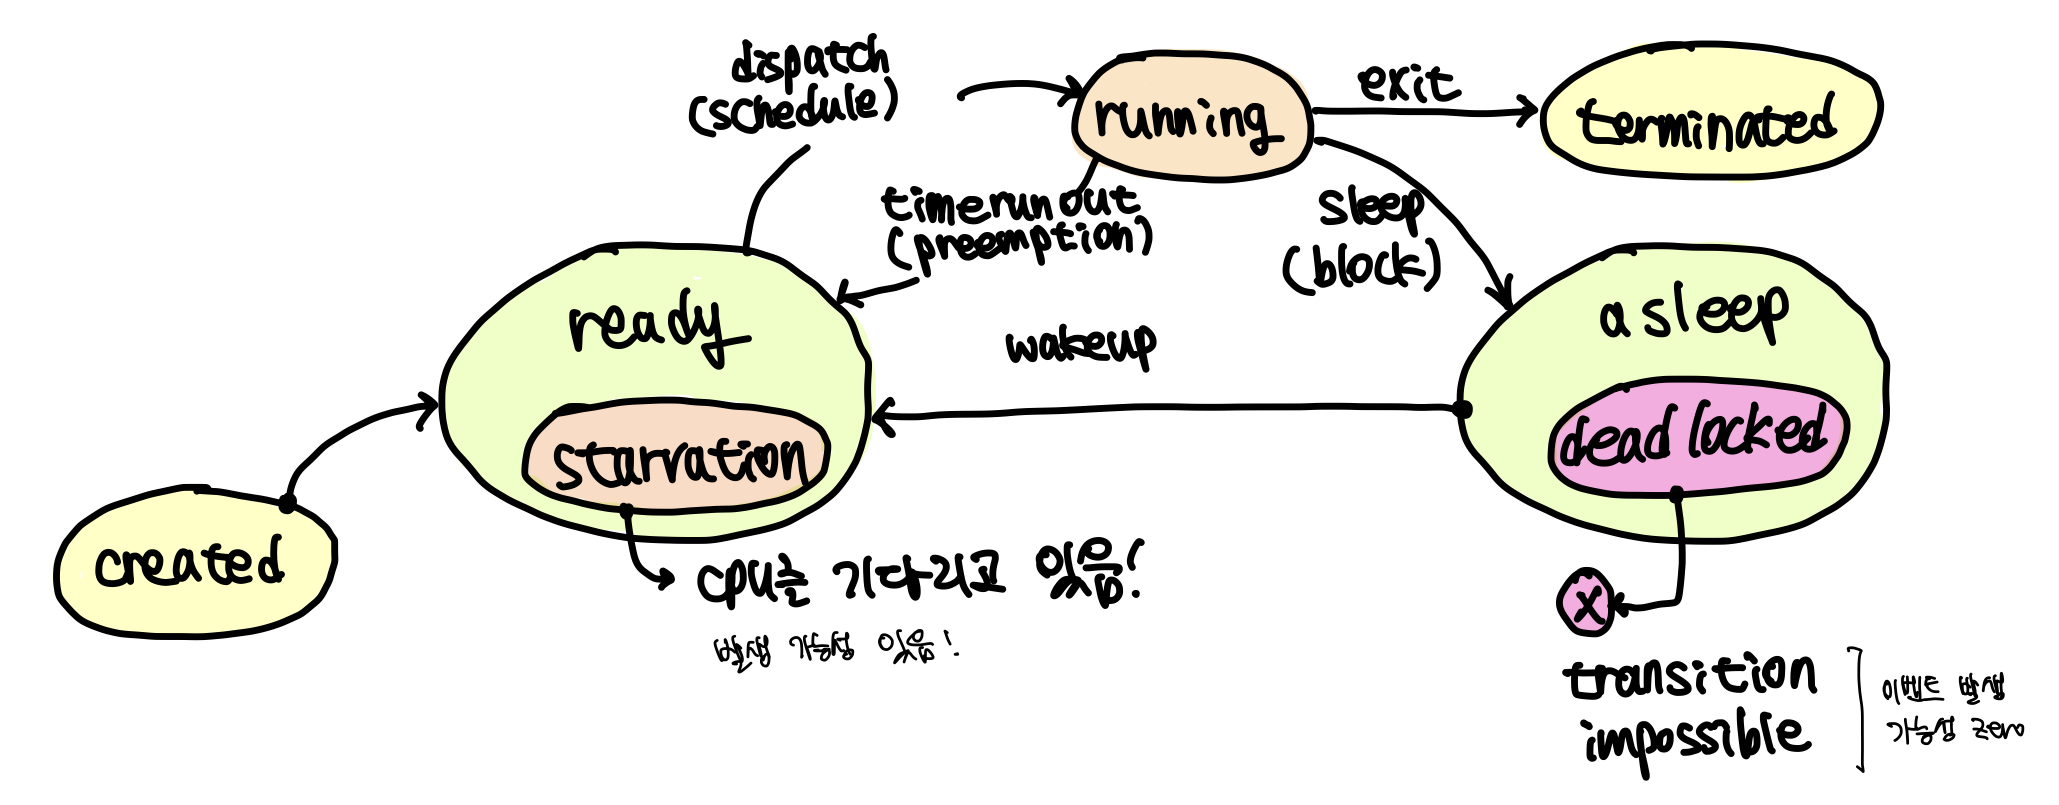 dispatch
(schedule)
running
exit
terminated
timerunout
(preemption)
sleep
(block)
ready
wakeup
asleep
starvation
deadlocked
created
cpu는 기다리고 있음!
발생 가능성 있음!
x
transition
impossible
이벤트 발생
가능성 zero